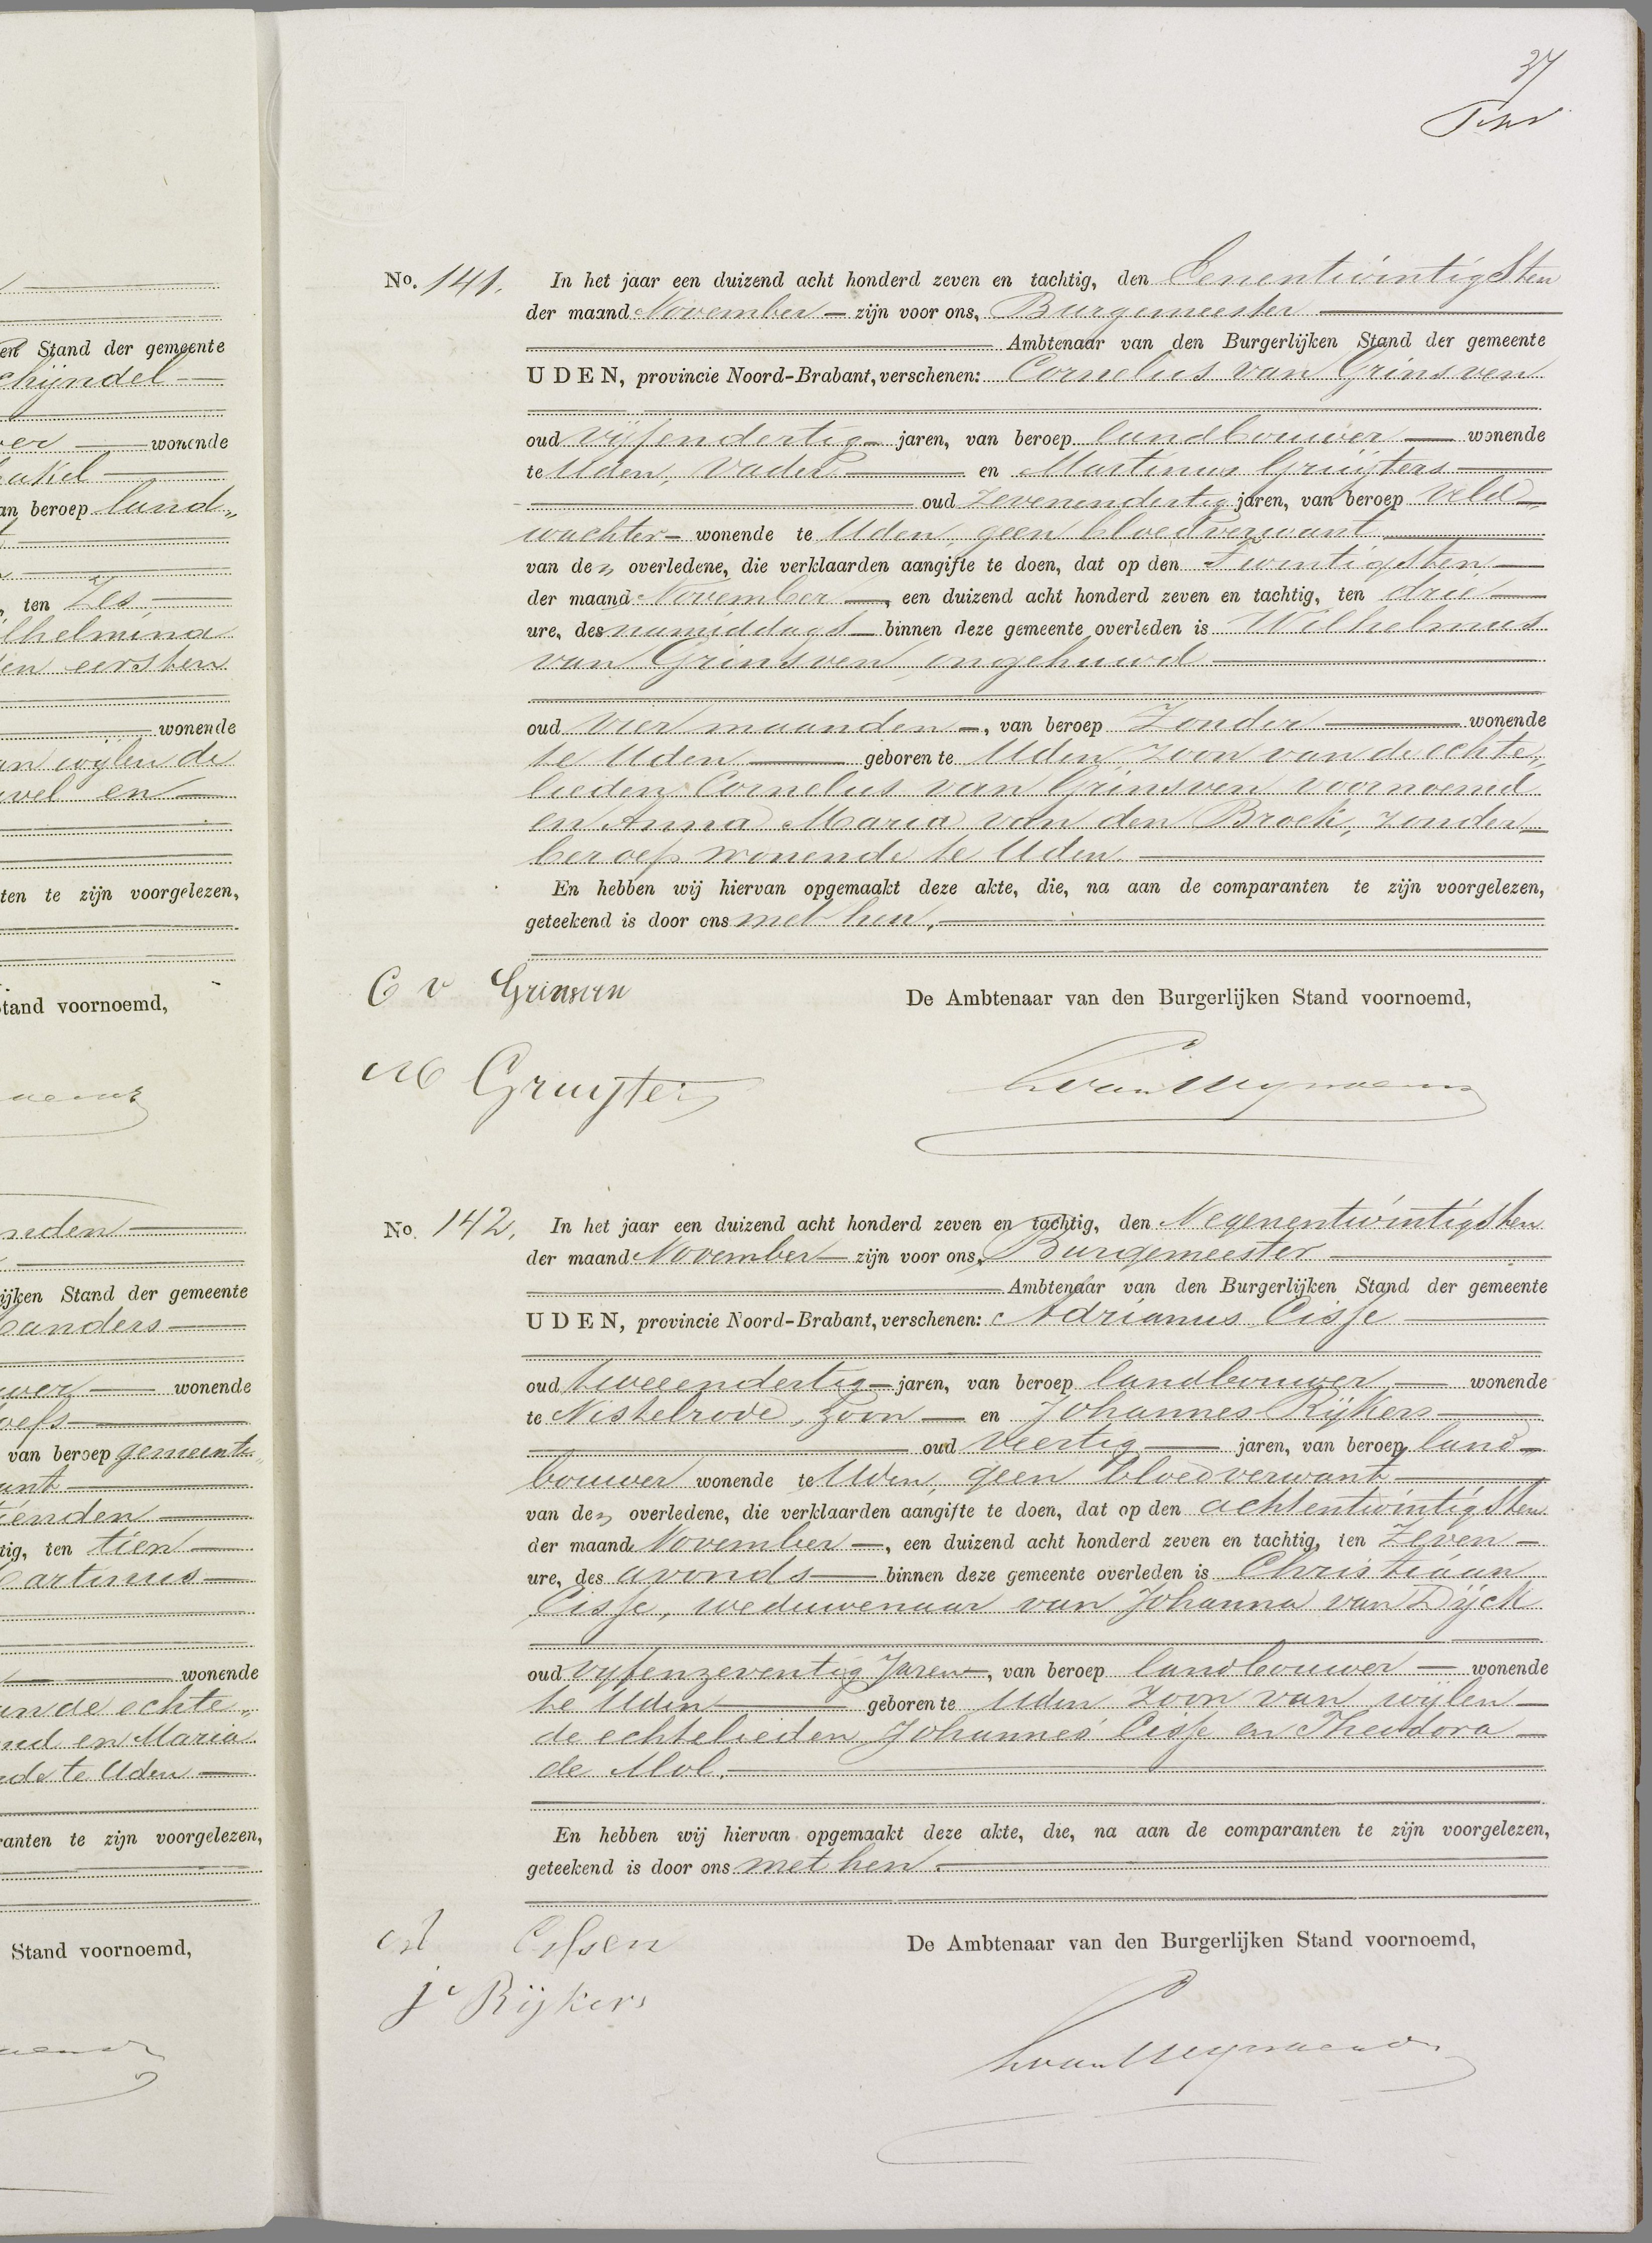 en Stand der gemeente
chijndel
wonende
akel
an beroep land„
, ten Zes
lhelmina
en eersten
wonende
an wijlen de
vel en
ten te zijn voorgelezen,
Stand voornoemd,
neden
ijken Stand der gemeente
anders
wer wonende
oefs
van beroep gemeente„
ant
ienden
tig, ten tien
artinus
wonende
an de echte„
nd en Maria
nde te Uden
ranten te zijn voorgelezen,
Stand voornoemd,
37
No. 141. In het jaar een duizend acht honderd zeven en tachtig, den Eenentwintigsten
der maand November zijn voor ons, Burgemeester
Ambtenaar van den Burgerlijken Stand der gemeente
UDEN, provincie Noord-Brabant, verschenen: Cornelus van Grinsven
oud vijfendertig jaren, van beroep landbouwer wonende
te Uden, vader en Martinus Gruijters
oud zevenendertig jaren, van beroep veld
wachter wonende te Uden, geen bloedverwant
van den overledene, die verklaarden aangifte te doen, dat op den Twintigsten
der maand November, een duizend acht honderd zeven en tachtig, ten drie
ure, des namiddags binnen deze gemeente overleden is Wilhelmus
van Grinsven ongehuwd
oud vier maanden, van beroep Zonder wonende
te Uden geboren te Uden, zoon van de echte„
lieden Cornelus van Grinsven voornoemd
en Anna Maria van den Broek, zonder
beroep wonende te Uden.
En hebben wij hiervan opgemaakt deze akte, die, na aan de comparanten te zijn voorgelezen,
geteekend is door ons met hen.
C v Grinsven
De Ambtenaar van den Burgerlijken Stand voornoemd,
M Gruijters
No. 142. In het jaar een duizend acht honderd zeven en tachtig, den Negenentwintigsten
der maand November zijn voor ons, Burgemeester
Ambtenaar van den Burgerlijken Stand der gemeente
UDEN, provincie Noord-Brabant, verschenen: Adrianus Cisse
oud tweeendertig jaren, van beroep landbouwer wonende
te Nistelrode, zoon en Johannes Rijkers
oud veertig jaren, van beroep land
bouwer wonende te Uden, geen bloedverwant
van den overledene, die verklaarden aangifte te doen, dat op den achtentwintigsten
der maand November, een duizend acht honderd zeven en tachtig, ten Zeven
ure, des avonds binnen deze gemeente overleden is Christiaan
Cisse, weduwenaar van Johanna van Dijck
oud vijfenzeventig Jaren, van beroep landbouwer wonende
te Uden geboren te Uden zoon van wijlen
de echtelieden Johannes Cisse en Theodora
de Mol.
En hebben wij hiervan opgemaakt deze akte, die, na aan de comparanten te zijn voorgelezen,
geteekend is door ons met hen.
A Cissen
De Ambtenaar van den Burgerlijken Stand voornoemd,
J Rijkers